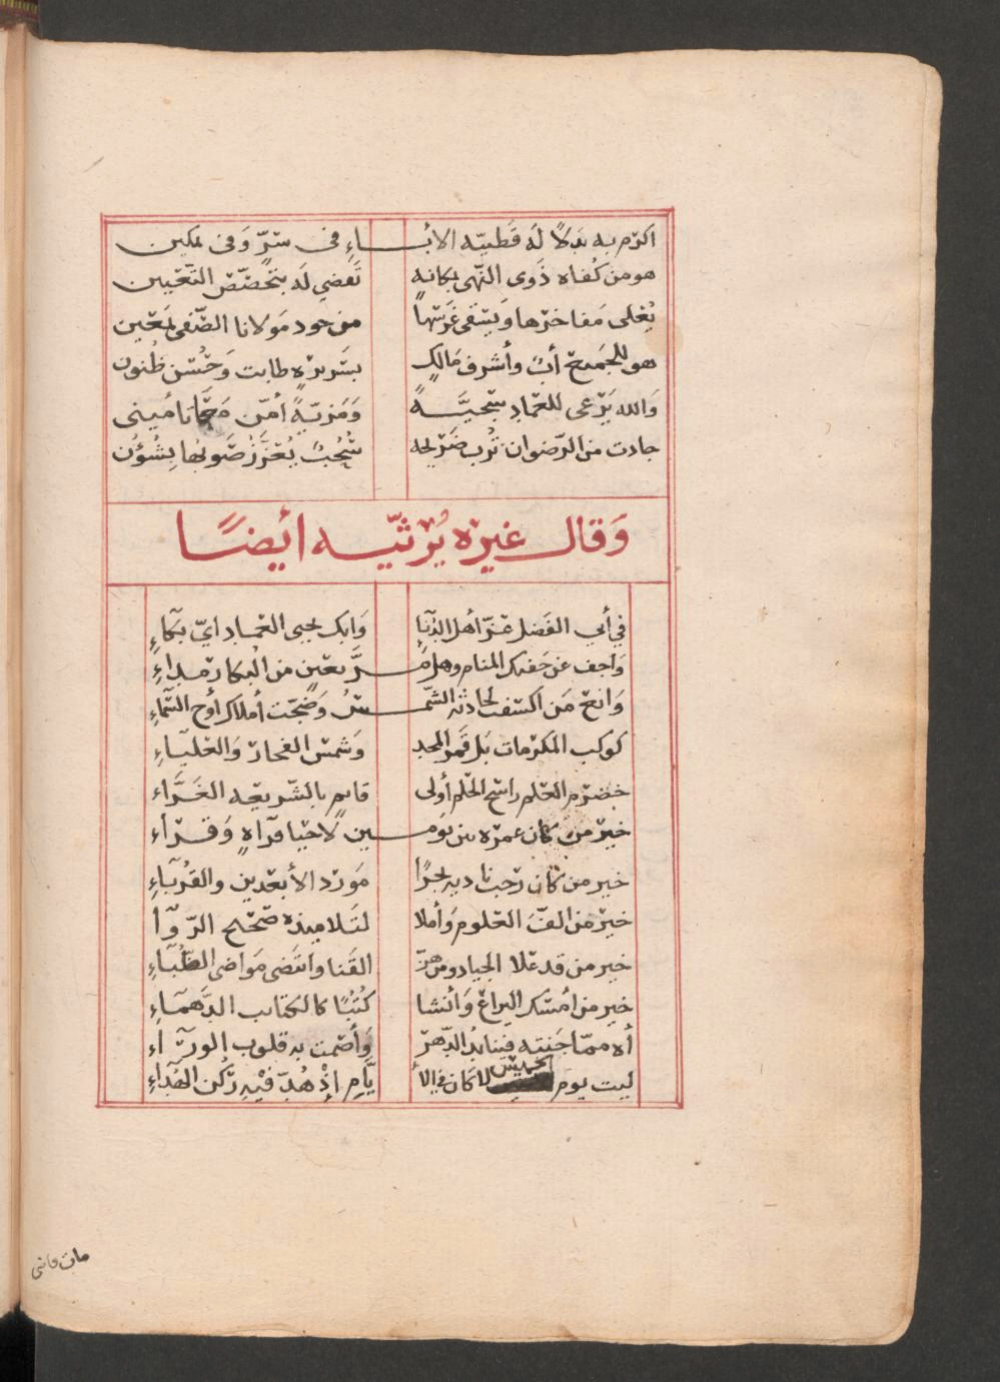 اكرم به بدلاً له قطبيّه الأبـــاءِ في سرٍّ وَفي تمكين
هو من كُفاه ذَوى النّهى بكانه تَقضي لَه بتخصّص التّعيين
يُعلى مَفاخرها وَيسقى غَرسَهَا من جود مَولانا الصّفي بمَعين
هو للجَميع أبٌ وأشرف مَالكٍ بسَريرَهٍ طابت وَحُسن ظُنون
وَالله يَرعى للعمَاد سَجيَّـــةً وَمَزيّةً
جادت من الرّضوان تُرب ضَريحه سُحُبٌ يُعزّزُ صَوبهُا بِشُؤن
وَقال غيره يَرثيـــه أيضــًا
في أبي الفَضل عَزّ أهل وَابك يحيى العمَاد ايّ بكاءِ
وَاجف عن جَفنك المنام وهل مرَّ بعَين من البكا
وَانعَ مَن اكسفت لحادثه الشّمـــسُ وَضجّت أملاك أوج السّماءِ
كوكب المكرمات بَل قَمر المجد وَشمس الفخار وَالعَليَاءِ
خضرَم العلم راسخ الحلم أولى قايم بالشّريعه الغَرَّاء
خير من كان عمره بين يَومـــين لاحيا
خير من كان رَحب ناديه بحرًا مَورد الأبعَدين والقُرباءِ
خير من الفَّ العلوم وَأملا لتَلاميذه صَحيح الرّوَا
خير من قد عَلا الجياد ومن هزّ القَنا وانتَضى مَواضى الظُّبَاءِ
خير من أمسَك اليراعَ وَأنشا كُتبًا كالكتائب الدَّهمآءِ
أه ممّا جَنته فينا يدُ الدّهر وَأصْمت به قلوب الورَآء
ليت يوم الخميس لا كان في الأ يَّامِ إذْ هُدّ فيْهِ رُكن الهُدَاءِ